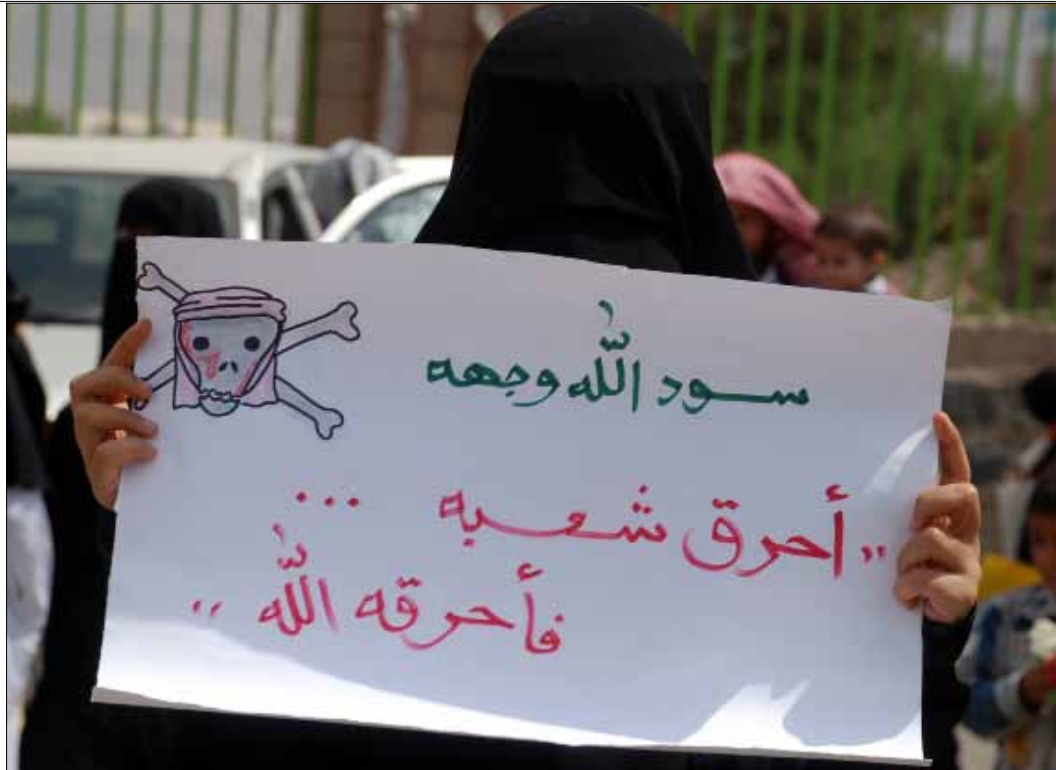 سود الله وجهه
,, أحرق شعبه ...
فأحرقه الله ,,